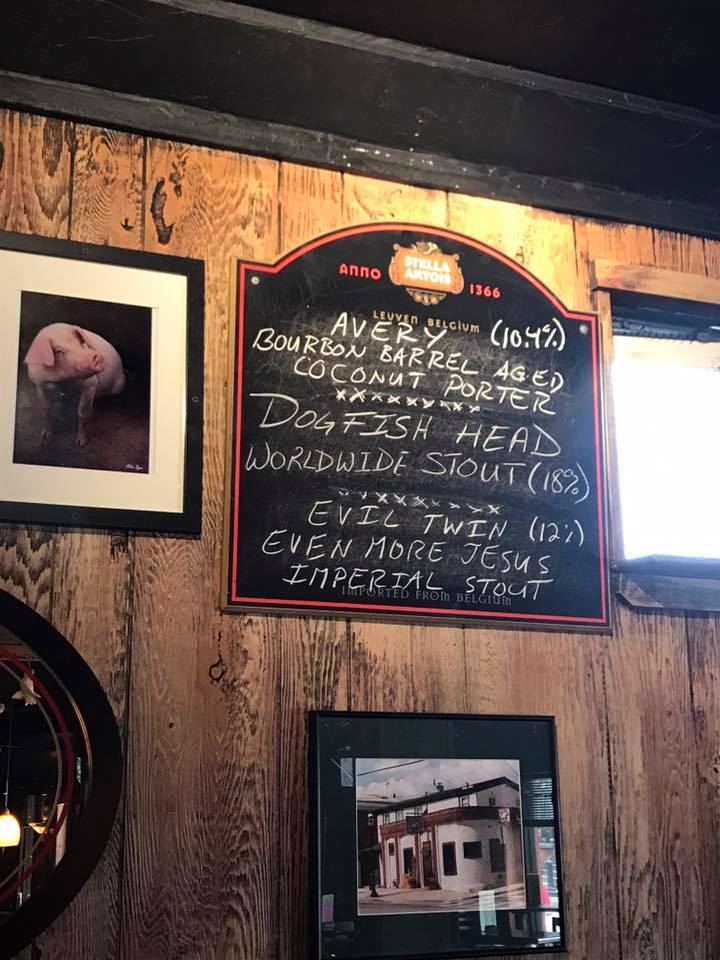 STELLA
ARTOIS
ANNO 1366
LEUVEN BELGIUM
AVERY (10.4%)
BOURBON BARREL AGED
COCONUT PORTER
xxxxxxxx
DOGFISH HEAD
WORLDWIDE STOUT (18%)
xxxxxxxx
EVIL TWIN (12%)
EVEN MORE JESUS
IMPERIAL STOUT
IMPORTED FROM BELGIUM